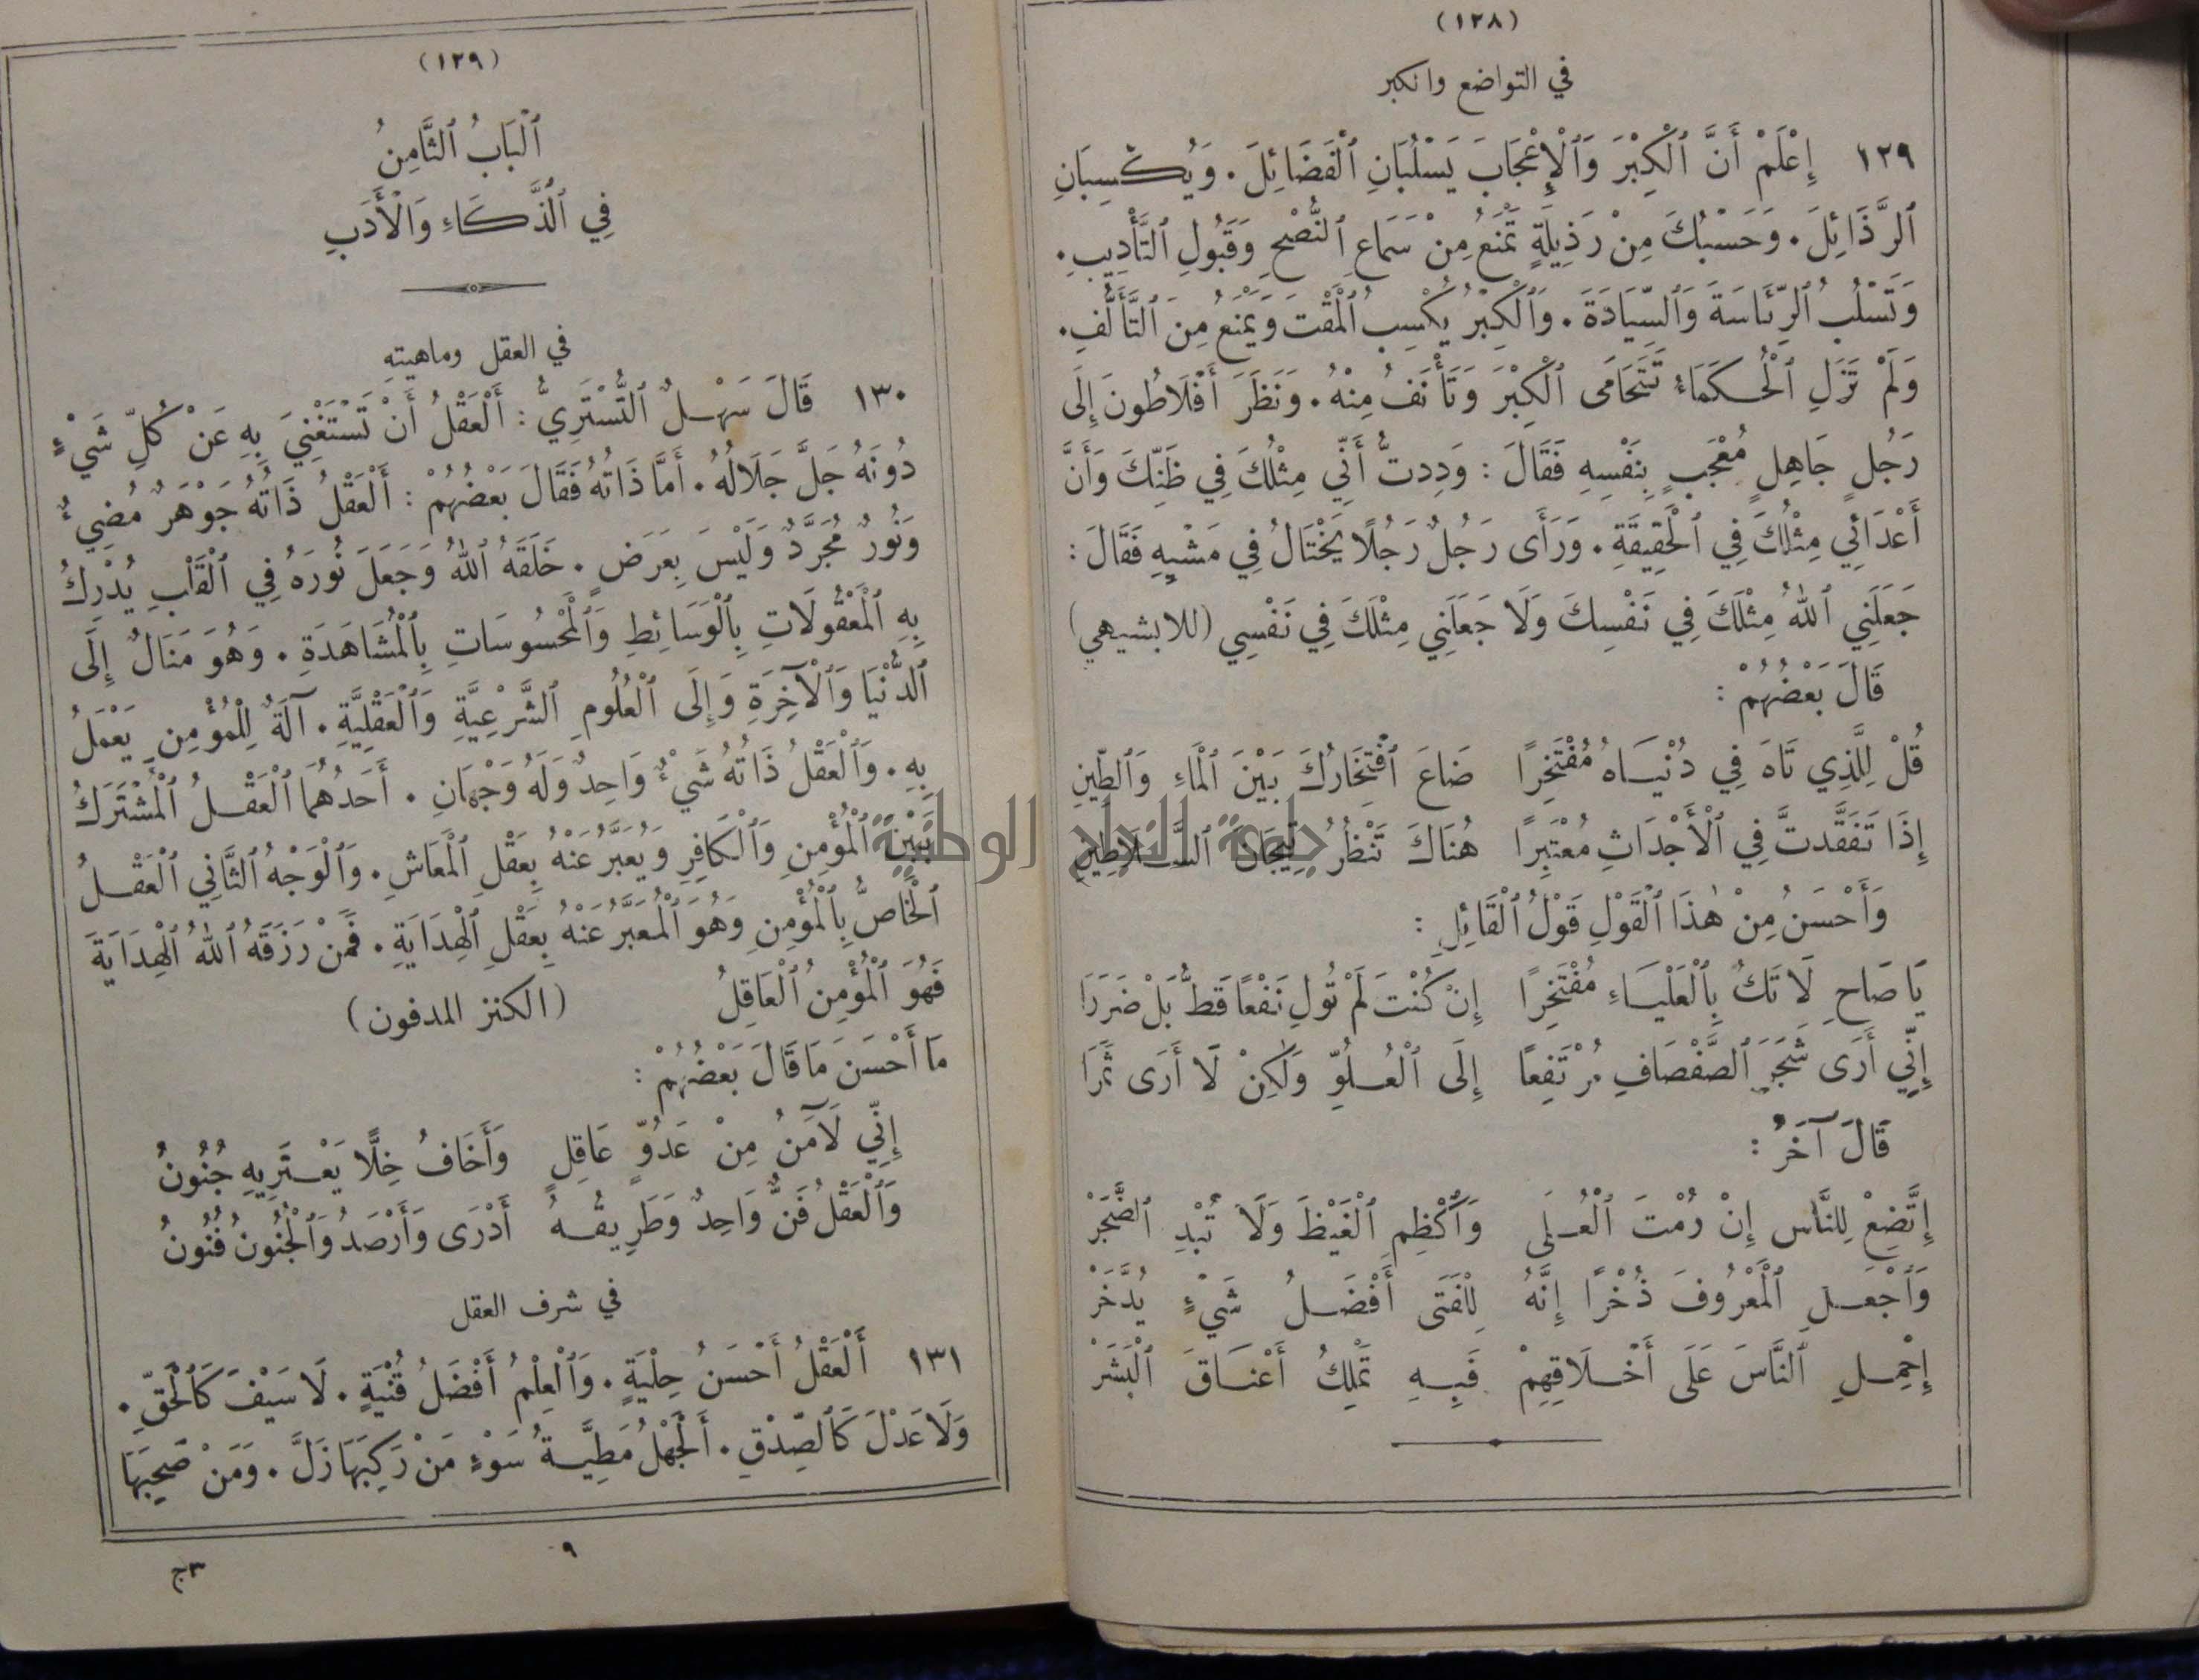 (١٢٨)
في التواضع والكبر
١٢٩ إِعْلَمْ أَنَّ ٱلْكِبْرَ وَٱلْإِعْجَابَ يَسْلُبَانِ ٱلْفَضَائِلَ. وَيُكْسِبَانِ
ٱلرَّذَائِلَ. وَحَسْبُكَ مِنْ رَذِيلَةٍ تَمْنَعُ مِنْ سَمَاعِ ٱلنُّصْحِ وَقَبُولِ ٱلتَّأْدِيبِ.
وَتَسْلُبُ ٱلرِّئَاسَةَ وَٱلسِّيَادَةَ. وَٱلْكِبْرُ يُكْسِبُ ٱلْمَقْتَ وَيَمْنَعُ مِنَ ٱلتَّأَلُّفِ.
وَلَمْ تَزَلِ ٱلْحُكَمَاءُ تَتَحَامَى ٱلْكِبْرَ وَتَأْنَفُ مِنْهُ. وَنَظَرَ أَفْلَاطُونَ إِلَى
رَجُلٍ جَاهِلٍ مُعْجَبٍ بِنَفْسِهِ فَقَالَ: وَدِدتُّ أَنِّي مِثْلُكَ فِي ظَنِّكَ وَأَنَّ
أَعْدَائِي مِثْلُكَ فِي ٱلْحَقِيقَةِ. وَرَأَى رَجُلٌ رَجُلًا يَخْتَالُ فِي مَشْيِهِ فَقَالَ:
جَعَلَنِي ٱللهُ مِثْلَكَ فِي نَفْسِكَ وَلَا جَعَلَنِي مِثْلَكَ فِي نَفْسِي (للابشيهي)
قَالَ بَعْضُهُمْ:
قُلْ لِلَّذِي تَاهَ فِي دُنْيَاهُ مُفْتَخِرًا ضَاعَ ٱفْتِخَارُكَ بَيْنَ ٱلْمَاءِ وَٱلطِّينِ
إِذَا تَفَقَّدتَّ فِي ٱلْأَجْدَاثِ مُعْتَبِرًا هُنَاكَ تَنْظُرُ تِيجَانَ ٱلسَّلَاطِينِ
وَأَحْسَنُ مِنْ هٰذَا ٱلْقَوْلِ قَوْلُ ٱلْقَائِلِ:
يَا صَاحِ لَا تَكُ بِٱلْعَلْيَاءِ مُفْتَخِرًا إِنْ كُنْتَ لَمْ تُولِ نَفْعًا قَطُّ بَلْ ضَرَرَا
إِنِّي أَرَى شَجَرَ ٱلصَّفْصَافِ مُرْتَفِعًا إِلَى ٱلْعُلُوِّ وَلٰكِنْ لَا أَرَى ثَمَرَا
قَالَ آخَرُ:
إِتَّضِعْ لِلنَّاسِ إِنْ رُمْتَ ٱلْعُلَى وَٱكْظِمِ ٱلْغَيْظَ وَلَا تُبْدِ ٱلضَّجَرْ
وَٱجْعَلِ ٱلْمَعْرُوفَ ذُخْرًا إِنَّهُ لِلْفَتَى أَفْضَلُ شَيْءٍ يُدَّخَرْ
إِحْمِلِ ٱلنَّاسَ عَلَى أَخْلَاقِهِمْ فَبِهِ تَمْلِكُ أَعْنَاقَ ٱلْبَشَرْ
(١٢٩)
ٱلْبَابُ ٱلثَّامِنُ
فِي ٱلذَّكَاءِ وَٱلْأَدَبِ
في العقل وماهيته
١٣٠ قَالَ سَهْلٌ ٱلتُّسْتَرِيُّ: أَلْعَقْلُ أَنْ تَسْتَغْنِيَ بِهِ عَنْ كُلِّ شَيْءٍ
دُونَهُ جَلَّ جَلَالُهُ. أَمَّا ذَاتُهُ فَقَالَ بَعْضُهُمْ: أَلْعَقْلُ ذَاتُهُ جَوْهَرٌ مُضِيءٌ
وَنُورٌ مُجَرَّدٌ وَلَيْسَ بِعَرَضٍ. خَلَقَهُ ٱللهُ وَجَعَلَ نُورَهُ فِي ٱلْقَلْبِ يُدْرِكُ
بِهِ ٱلْمَعْقُولَاتِ بِٱلْوَسَائِطِ وَٱلْمَحْسُوسَاتِ بِٱلْمُشَاهَدَةِ. وَهُوَ مَنَالٌ إِلَى
ٱلدُّنْيَا وَٱلْآخِرَةِ وَإِلَى ٱلْعُلُومِ ٱلشَّرْعِيَّةِ وَٱلْعَقْلِيَّةِ. آلَةٌ لِلْمُؤْمِنِ يَعْمَلُ
بِهِ. وَٱلْعَقْلُ ذَاتُهُ شَيْءٌ وَاحِدٌ وَلَهُ وَجْهَانِ. أَحَدُهُمَا ٱلْعَقْلُ ٱلْمُشْتَرَكُ
بَيْنَ ٱلْمُؤْمِنِ وَٱلْكَافِرِ وَيُعَبَّرُ عَنْهُ بِعَقْلِ ٱلْمَعَاشِ. وَٱلْوَجْهُ ٱلثَّانِي ٱلْعَقْلُ
ٱلْخَاصُّ بِٱلْمُؤْمِنِ وَهُوَ ٱلْمُعَبَّرُ عَنْهُ بِعَقْلِ ٱلْهِدَايَةِ. فَمَنْ رَزَقَهُ ٱللهُ ٱلْهِدَايَةَ
فَهُوَ ٱلْمُؤْمِنُ ٱلْعَاقِلُ (الكنز المدفون)
مَا أَحْسَنَ مَا قَالَ بَعْضُهُمْ:
إِنِّي لَآمَنُ مِنْ عَدُوٍّ عَاقِلٍ وَأَخَافُ خِلًّا يَعْتَرِيهِ جُنُونُ
وَٱلْعَقْلُ فَنٌّ وَاحِدٌ وَطَرِيقُهُ أَدْرَى وَأَرْصَدُ وَٱلْجُنُونُ فُنُونُ
في شرف العقل
١٣١ أَلْعَقْلُ أَحْسَنُ حِلْيَةٍ. وَٱلْعِلْمُ أَفْضَلُ قُنْيَةٍ. لَا سَيْفَ كَٱلْحَقِّ.
وَلَا عَدْلَ كَٱلصِّدْقِ. أَلْجَهْلُ مَطِيَّةُ سَوْءٍ مَنْ رَكِبَهَا زَلَّ. وَمَنْ صَحِبَهَا
٩
ج٣
جامعة النجاح الوطنية